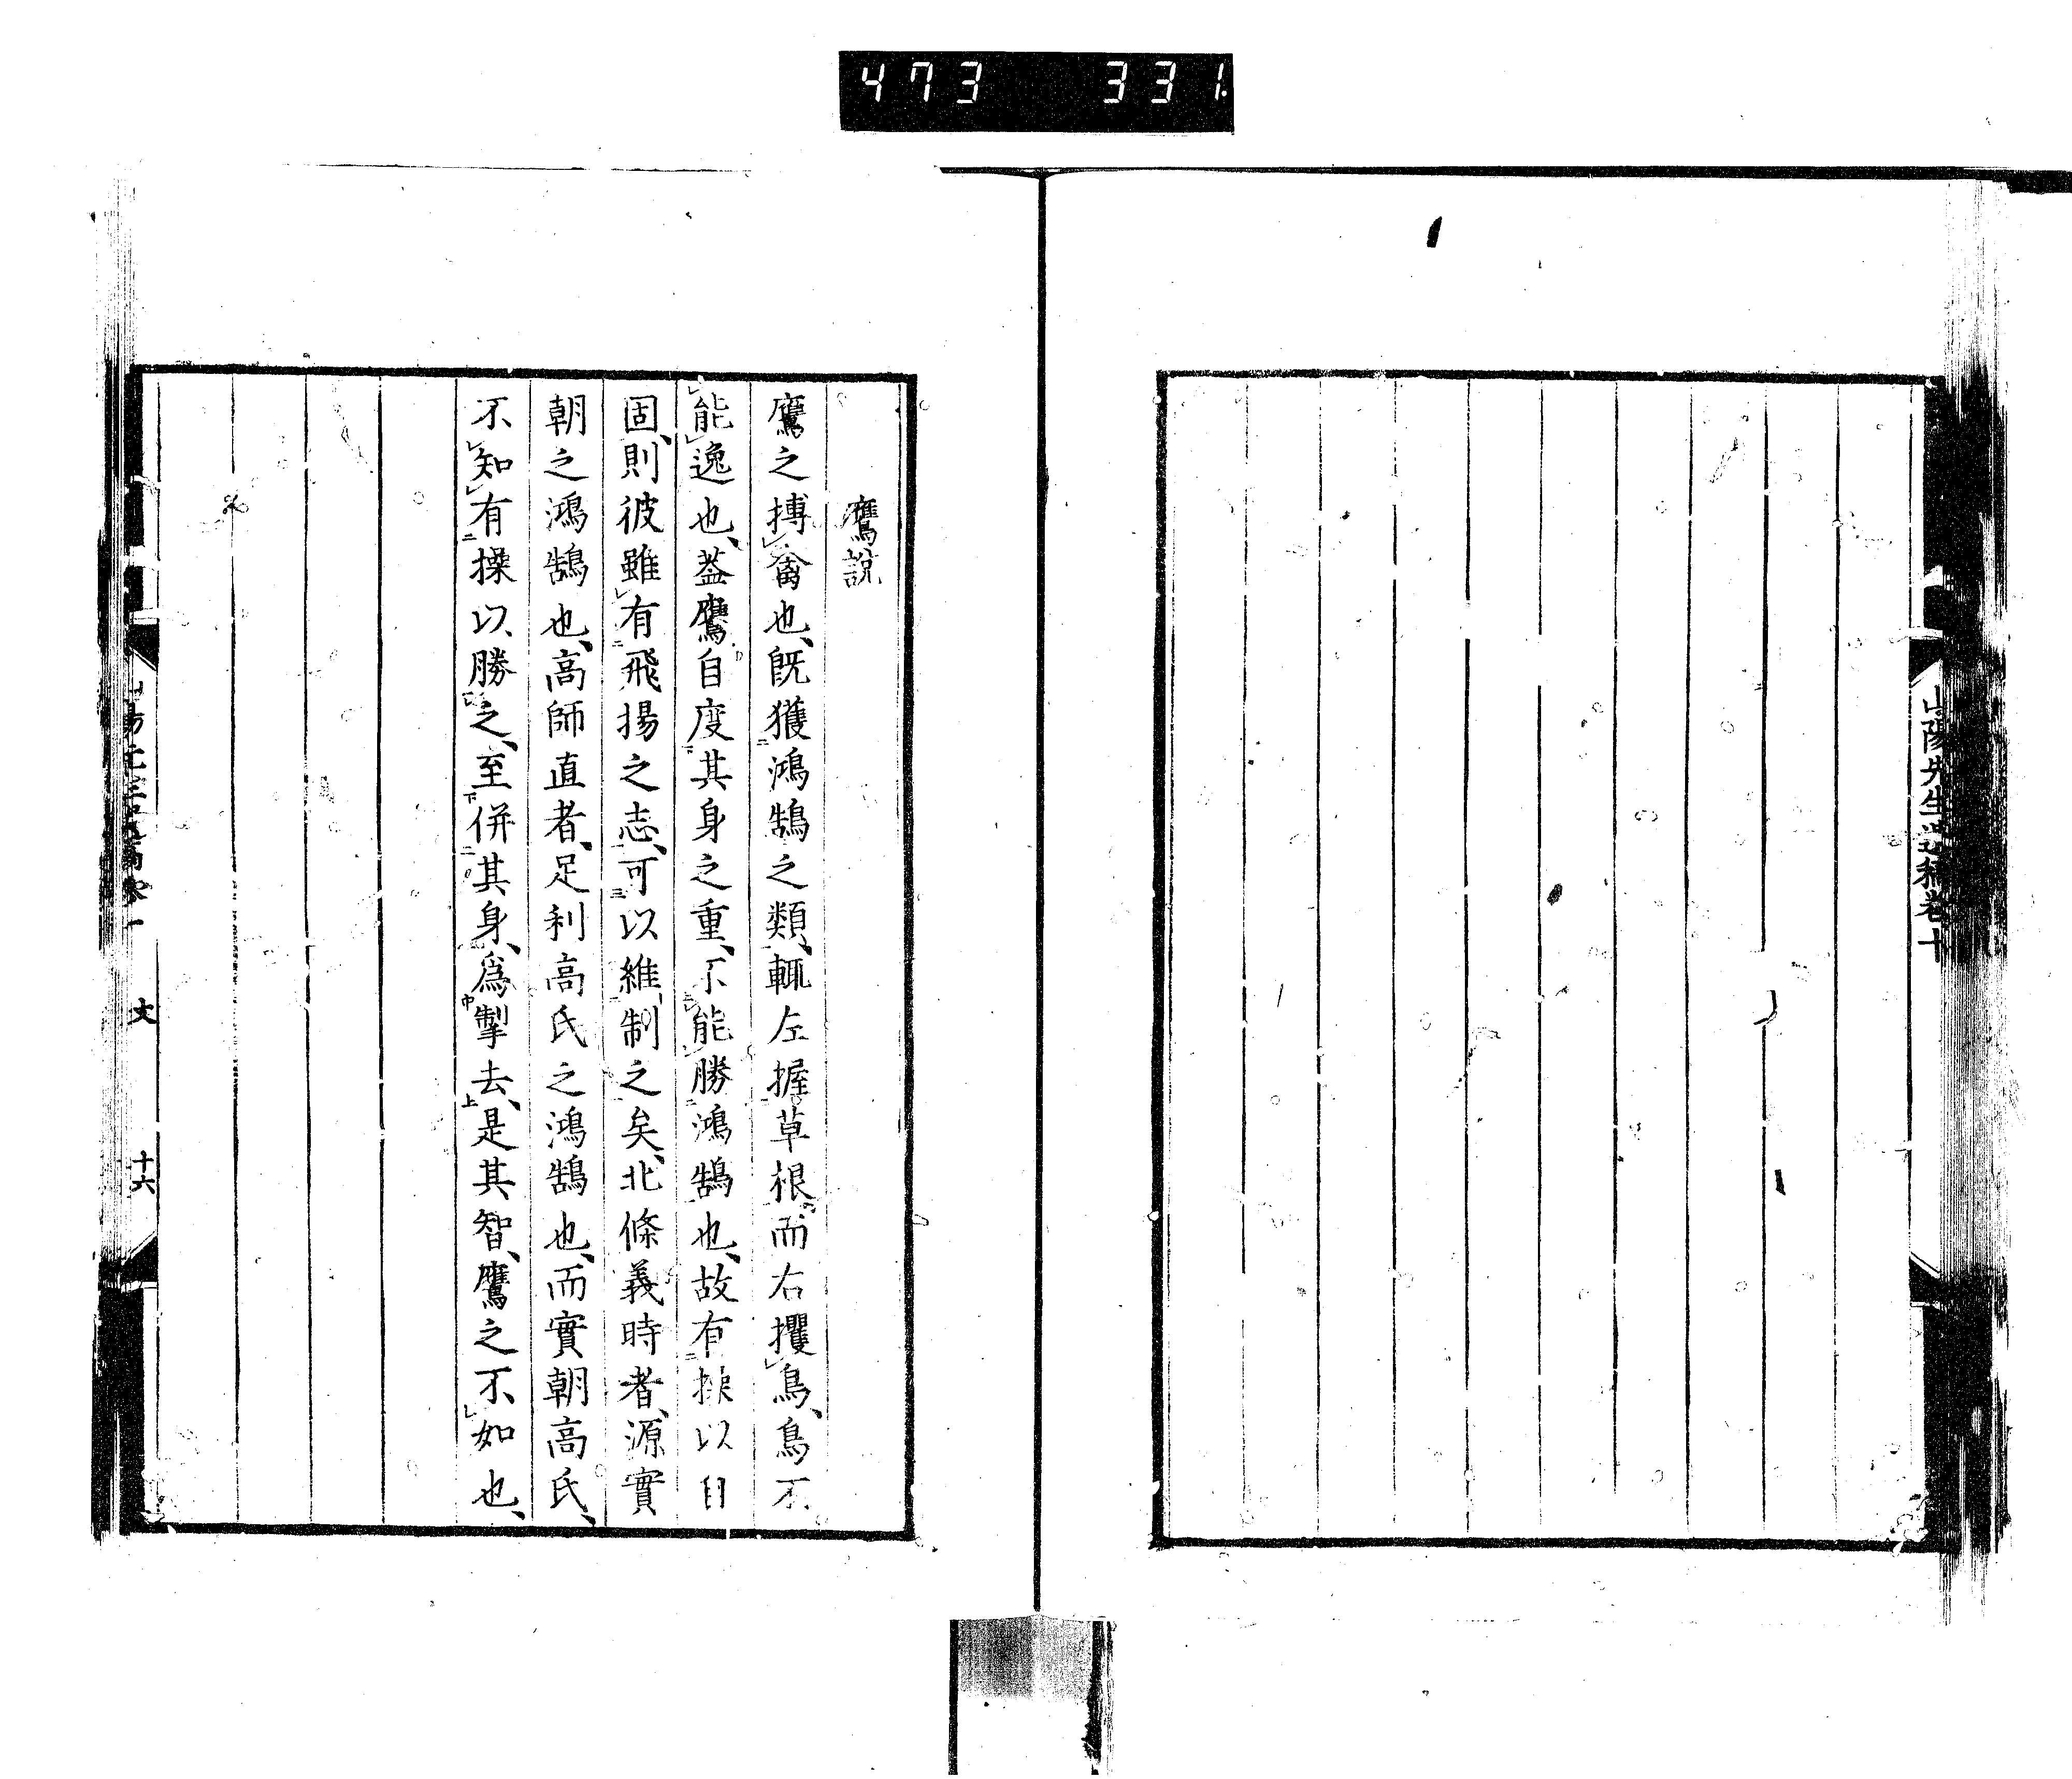 473 331.
山陽先生遺稿卷十
鷹說
鷹之搏禽也、既獲鴻鵠之類、輒左握草根、而右攫鳥、鳥不
能逸也、蓋鷹自度其身之重、不能勝鴻鵠也、故有操以自
固、則彼雖有飛揚之志、可以維制之矣、北條義時者、源實
朝之鴻鵠也、高師直者、足利高氏之鴻鵠也、而實朝高氏、
不知有操以勝之、至併其身、爲掣去、是其智、鷹之不如也、
文
十六